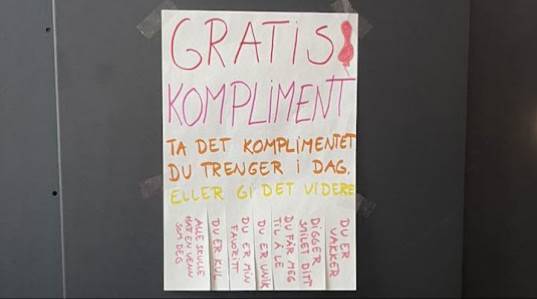 GRATIS!
KOMPLIMENT
TA DET KOMPLIMENTET
DU TRENGER I DAG.
ELLER GI DET VIDERE
ALLE SKULLE
HATT EN VENN
SOM DEG
DU ER KUL
DU ER MIN
FAVORITT
DU ER UNIK
DU FÅR MEG
TIL Å LE
DIGGER
SMILET DITT
DU ER
VAKKER